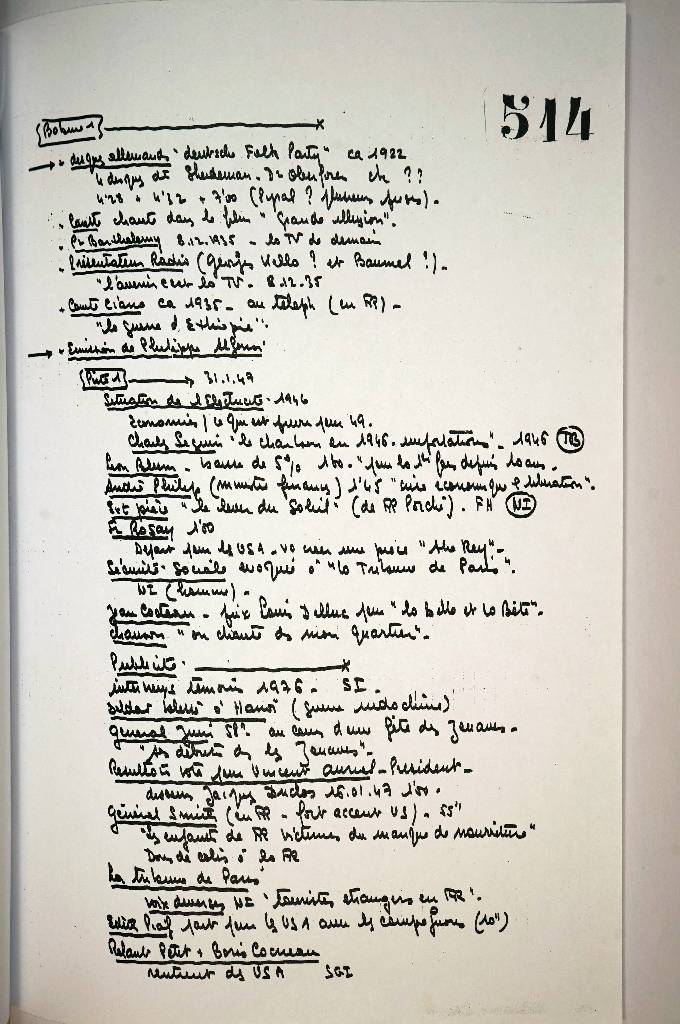 514
Bobine 1
disques allemands "deutsche Folk Party" ca 1922
4 disques dt
4'28 + 4'32 + 7'00 (Pyral ?
Comte chante dans le film "Grande illusion".
Pr Barthelemy 8.12.1935 - la TV de demain
Présentateur Radio (Georges Hello ? et Baumel ?).
"l'avenir c'est la TV - 8.12.35
Comte Ciano ca 1935 - au teleph (en FR) -
"la guerre d'Ethiopie".
Emission de Philippe
Piste 1 31.1.47
Situation de l'Electricité - 1946
Economies / ce qui est prévu pour 49.
Charles Seguin "le charbon en 1946. importations" - 1946 TB
Leon Blum - baisse de 5% 1'00 - "pour la 1ère fois depuis 10 ans.
André Philip (ministre finances) 1'45 "crise économique & libération".
Ext pièce "le lever du Soleil" (de FR Porché). FH NI
Fr Rosay 1'00
Départ pour les USA - va créer une pièce "the Rey" -
Sécurité Sociale évoquée à "la Tribune de Paris".
NI (homme) -
Jean Cocteau - prix Louis Delluc pour "la belle et la Bête".
chanson "on chante ds mon quartier" -
Publicité -
interneys témoin 1976 - SI -
Soldat blessé à Hanoï (guerre indochine)
Général Juin 58" au cours d'une fête des Zouaves -
"ses débuts ds les Zouaves" -
Resultats vote pour Vincent Auriol - Président -
discours Jacques Duclos 16.01.47 1'00 -
Général Smith (en FR - fort accent US) - 55"
"les enfants de FR victimes du manque de nourriture"
Dons de colis à la FR
La tribune de Paris
voix diverses NI "touristes étrangers en FR".
Edith Piaf part pour les USA avec les compagnons (10")
Roland Petit + Boris Cocneau
rentrent des USA SGI